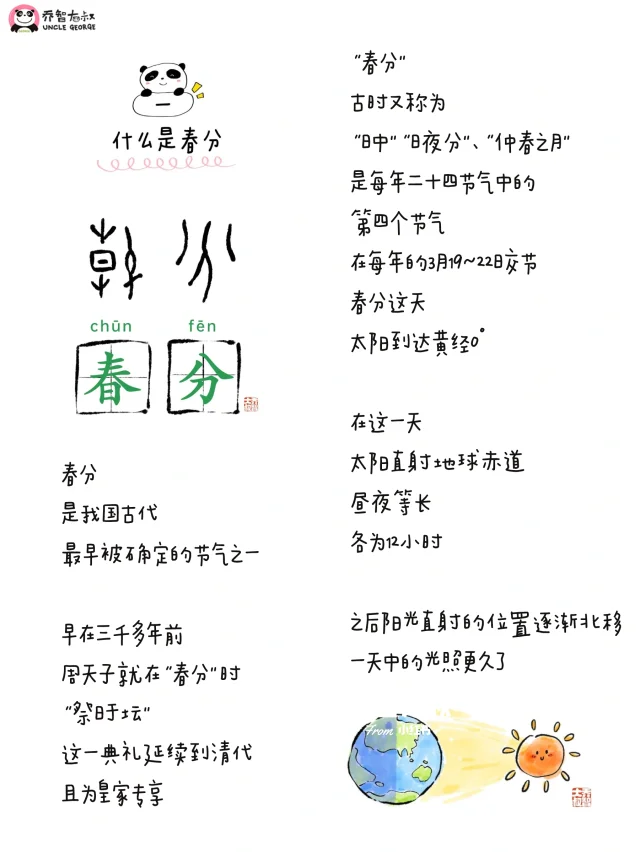 乔智大叔
UNCLE GEORGE
一
什么是春分
chūn fēn
春分
春分
是我国古代
最早被确定的节气之一
早在三千多年前
周天子就在"春分"时
"祭日于坛"
这一典礼延续到清代
且为皇家专享
"春分"
古时又称为
"日中""日夜分"、"仲春之月"
是每年二十四节气中的
第四个节气
在每年的3月19~22日交节
春分这天
太阳到达黄经0°
在这一天
太阳直射地球赤道
昼夜等长
各为12小时
之后阳光直射的位置逐渐北移
一天中的光照更久了
from